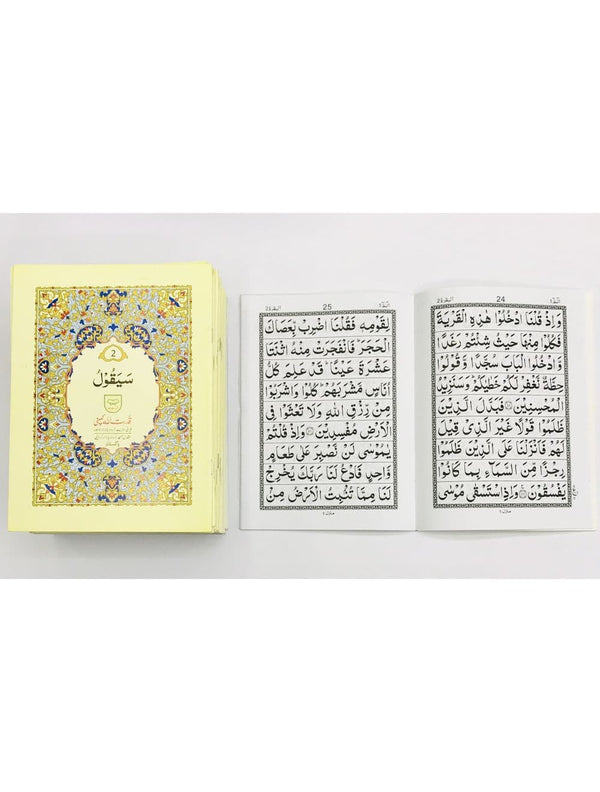 2
سَيَقُوْلُ
قدرت اللہ کمپنی
الٓمّٓ ١
24
البقرة ٢
وَاِذْ قُلْنَا ادْخُلُوْا هٰذِهِ الْقَرْيَةَ
فَكُلُوْا مِنْهَا حَيْثُ شِئْتُمْ رَغَدًا
وَّادْخُلُوا الْبَابَ سُجَّدًا وَّقُوْلُوْا
حِطَّةٌ نَّغْفِرْ لَكُمْ خَطٰيٰكُمْ ؕ وَسَنَزِيْدُ
الْمُحْسِنِيْنَ ۝ فَبَدَّلَ الَّذِيْنَ
ظَلَمُوْا قَوْلًا غَيْرَ الَّذِيْ قِيْلَ
لَهُمْ فَاَنْزَلْنَا عَلَى الَّذِيْنَ ظَلَمُوْا
رِجْزًا مِّنَ السَّمَآءِ بِمَا كَانُوْا
يَفْسُقُوْنَ ۝ وَاِذِ اسْتَسْقٰى مُوْسٰى
منزل ١
الٓمّٓ ١
25
البقرة ٢
لِقَوْمِهٖ فَقُلْنَا اضْرِبْ بِّعَصَاكَ
الْحَجَرَ ؕ فَانْفَجَرَتْ مِنْهُ اثْنَتَا
عَشْرَةَ عَيْنًا ؕ قَدْ عَلِمَ كُلُّ
اُنَاسٍ مَّشْرَبَهُمْ ؕ كُلُوْا وَاشْرَبُوْا
مِنْ رِّزْقِ اللّٰهِ وَلَا تَعْثَوْا فِى
الْاَرْضِ مُفْسِدِيْنَ ۝ وَاِذْ قُلْتُمْ
يٰمُوْسٰى لَنْ نَّصْبِرَ عَلٰى طَعَامٍ
وَّاحِدٍ فَادْعُ لَنَا رَبَّكَ يُخْرِجْ
لَنَا مِمَّا تُنْۢبِتُ الْاَرْضُ مِنْۢ
منزل ١